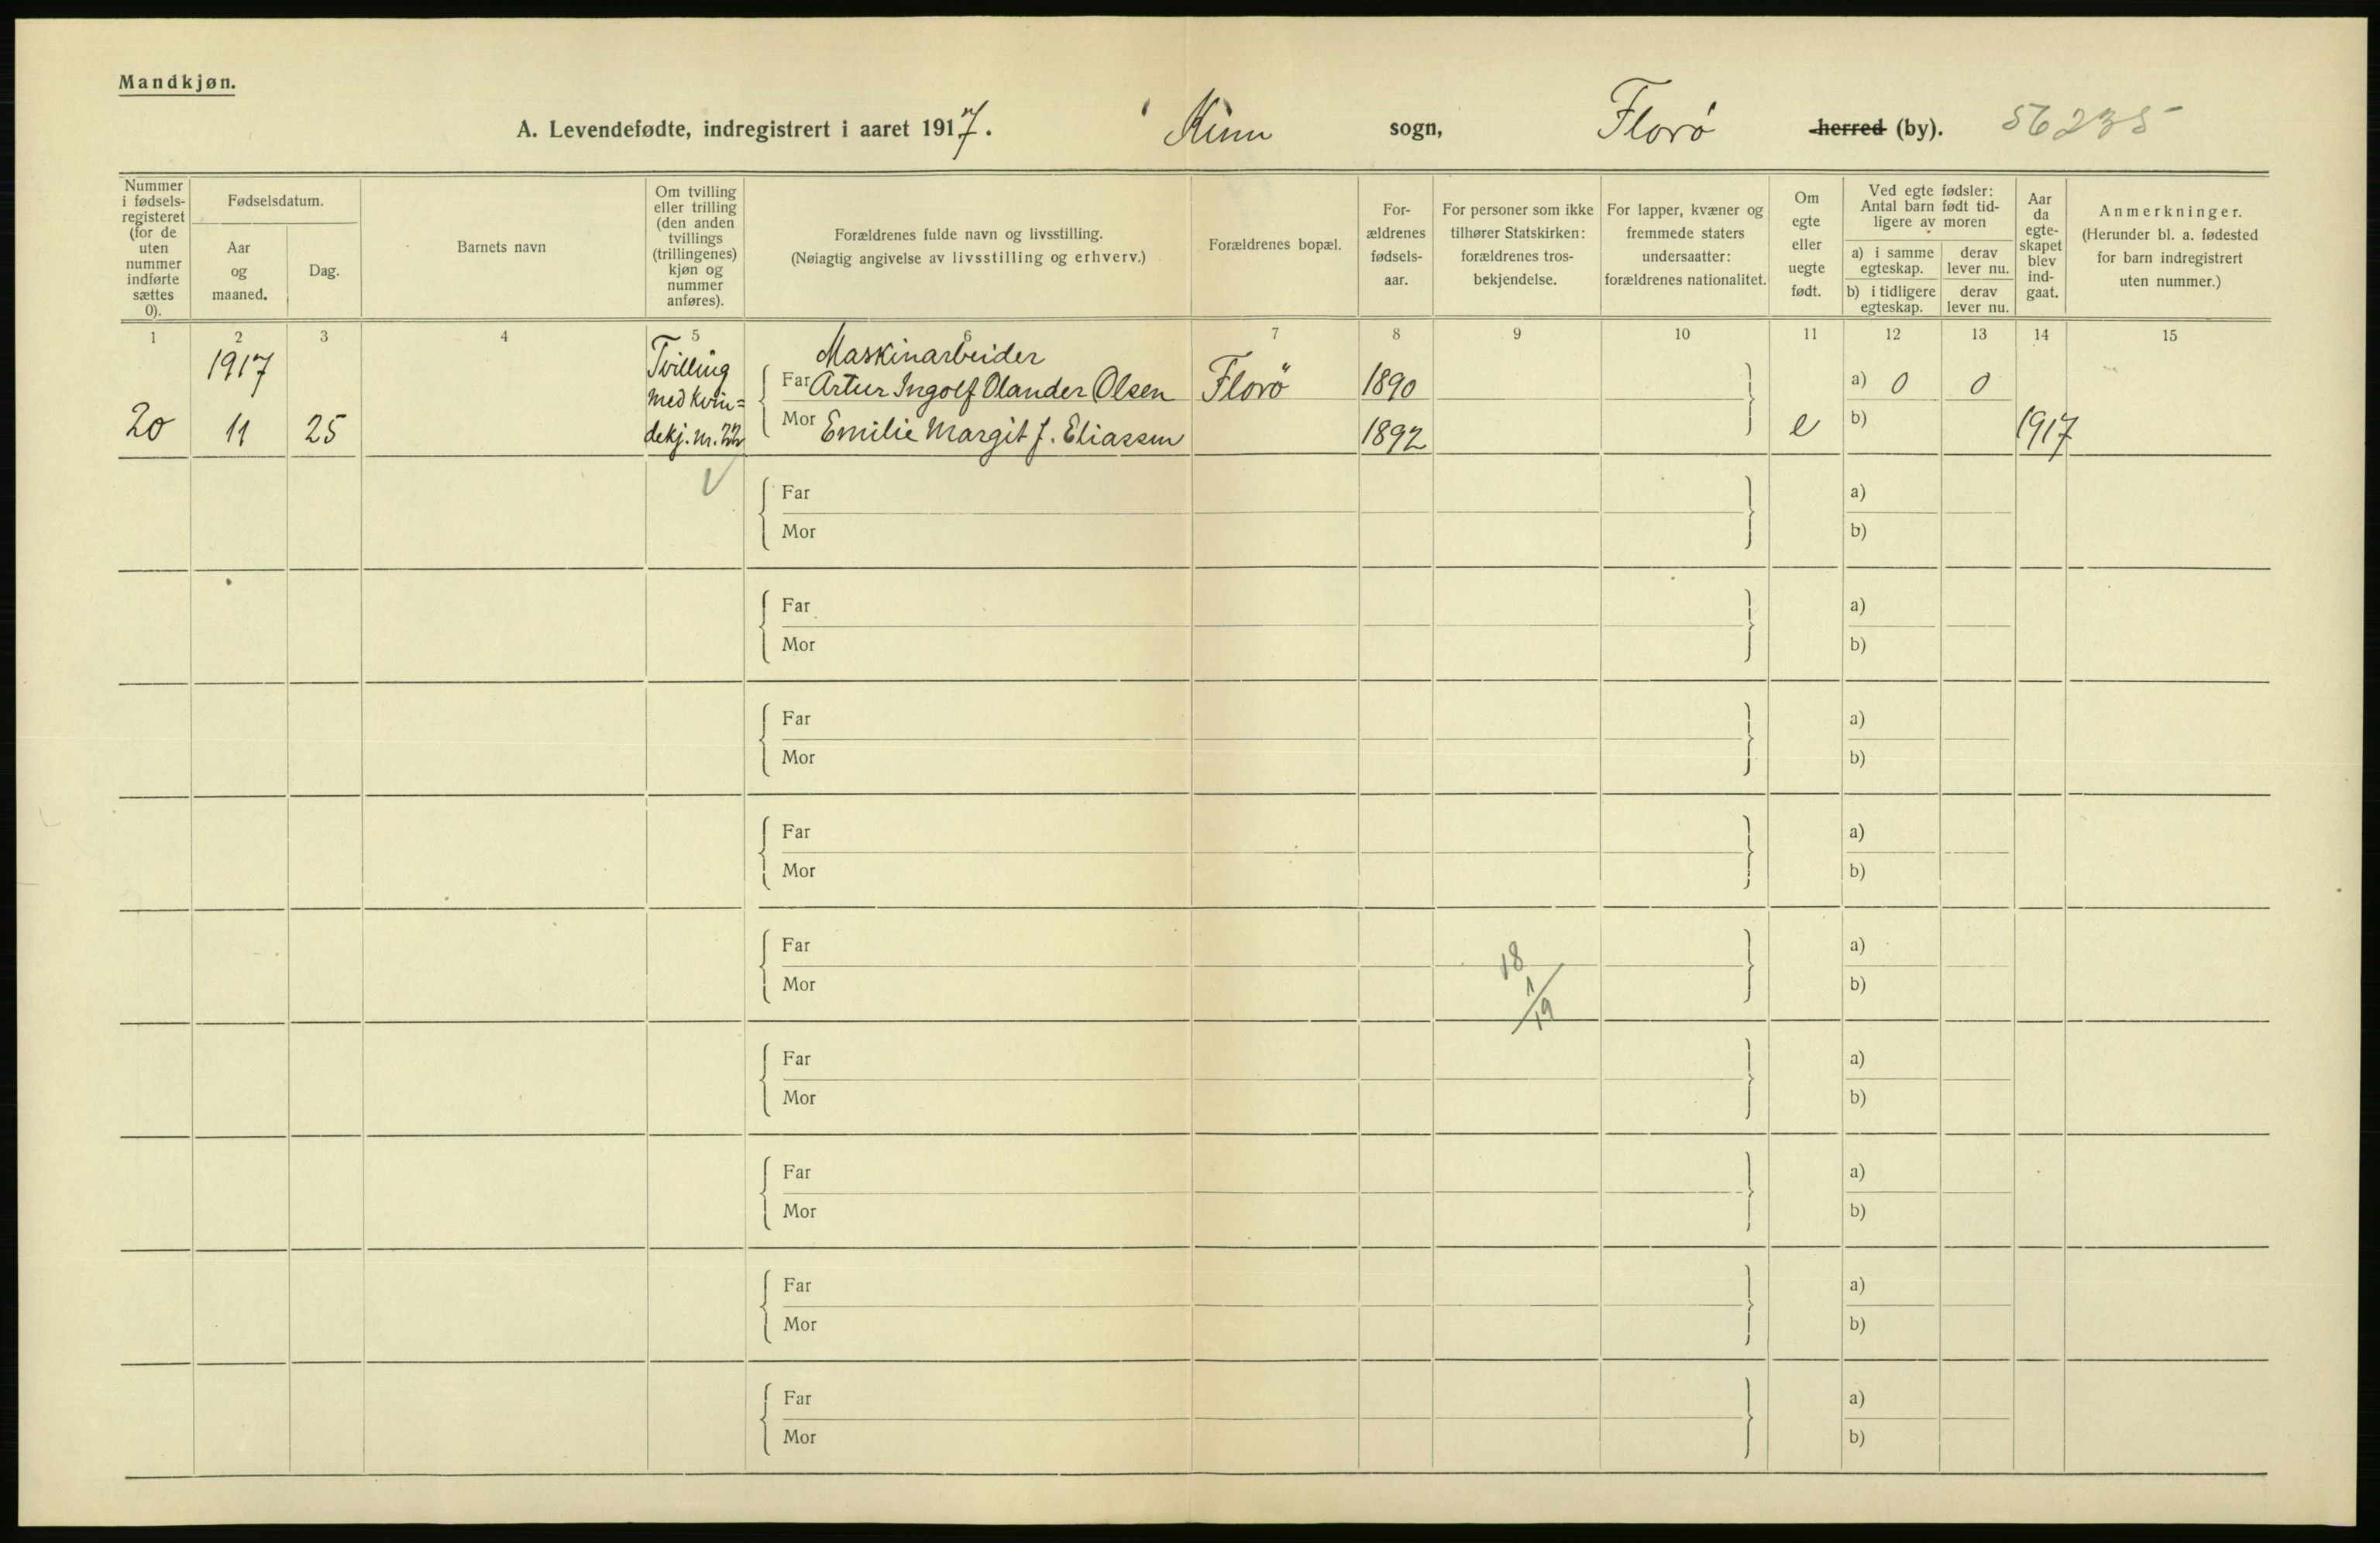 Mandkjøn.
A. Levendefødte, indregistrert i aaret 1917. Kinn sogn, Florø herred (by). 56235
Nummer i fødsels-registeret (for de uten nummer indførte sættes 0).
Fødselsdatum.
Aar og maaned.
Dag.
Barnets navn
Om tvilling eller trilling (den anden tvillings (trillingenes) kjøn og nummer anføres).
Forældrenes fulde navn og livsstilling.
(Nøiagtig angivelse av livsstilling og erhverv.)
Forældrenes bopæl.
For-ældrenes fødsels-aar.
For personer som ikke tilhører Statskirken: forældrenes tros-bekjendelse.
For lapper, kvæner og fremmede staters undersaatter: forældrenes nationalitet.
Om egte eller uegte født.
Ved egte fødsler: Antal barn født tid-ligere av moren
a) i samme egteskap.
derav lever nu.
b) i tidligere egteskap.
derav lever nu.
Aar da egte-skapet blev ind-gaat.
Anmerkninger.
(Herunder bl. a. fødested for barn indregistrert uten nummer.)
1 2 3 4 5 6 7 8 9 10 11 12 13 14 15
1917 Tvilling Maskinarbeider
med kvin= Far Artur Ingolf Olander Olsen Florö 1890 a) 0 0
20 11 25 dekj. nr. 22 Mor Emilie Margit J. Eliassen 1892 e b) 1917
Far a)
Mor b)
Far a)
Mor b)
Far a)
Mor b)
Far a)
Mor b)
Far 18 a)
Mor 1/19 b)
Far a)
Mor b)
Far a)
Mor b)
Far a)
Mor b)
Far a)
Mor b)